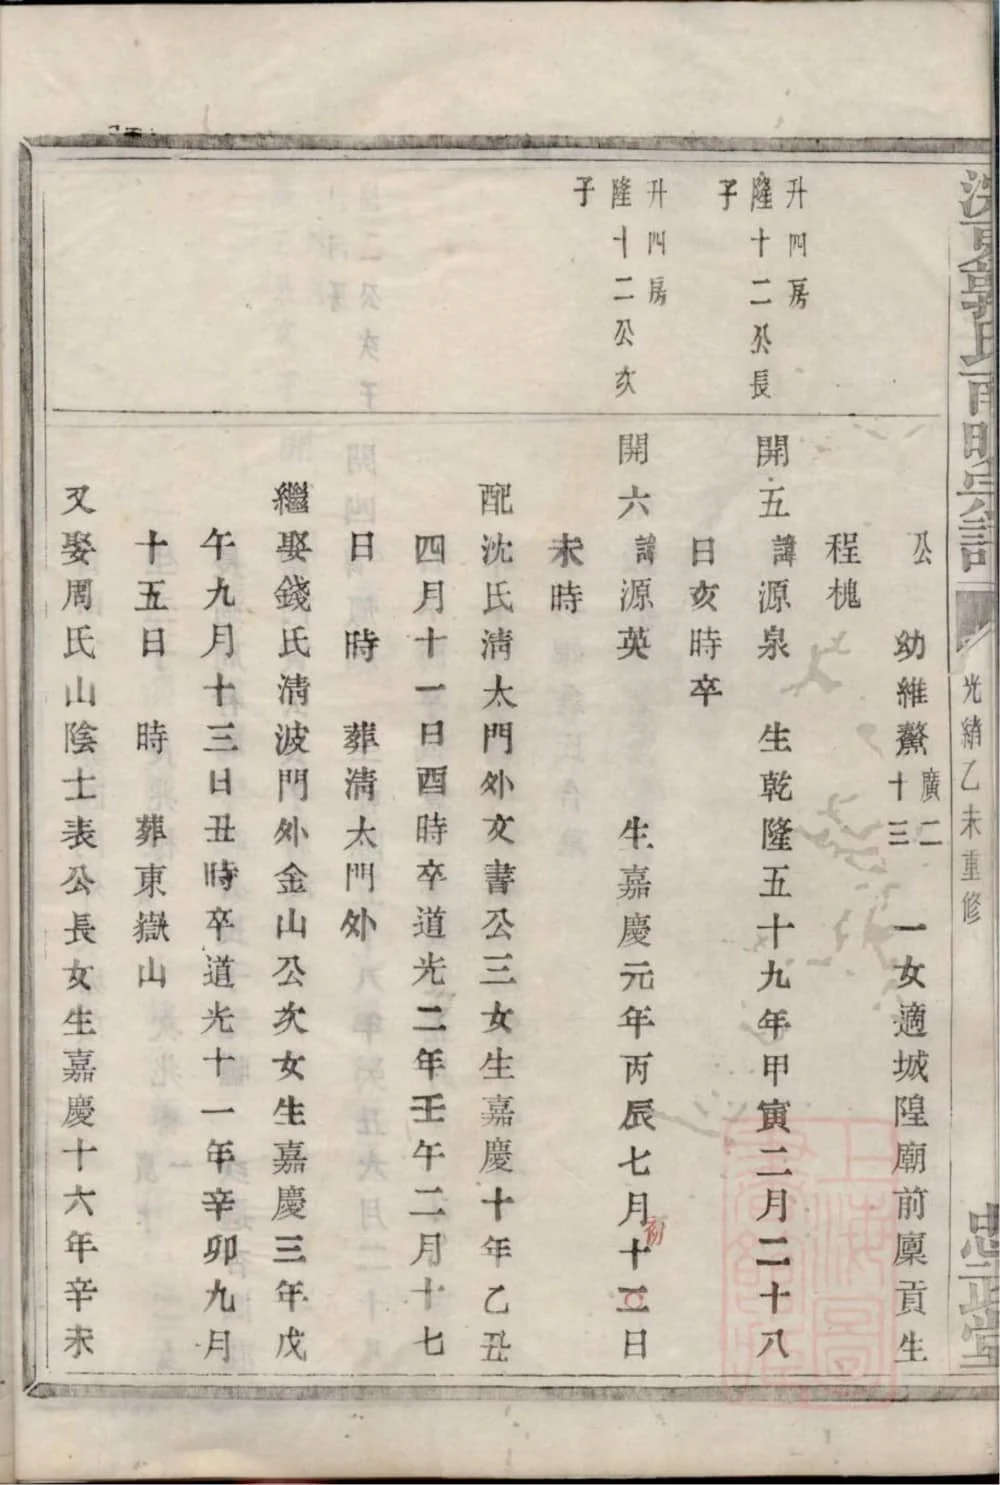 氏
宗譜
光緒乙未重修
忠正堂
公
幼維鰲
廣二
十三
一女適城隍廟前廩貢生
程槐
升四房
隆十二公長
子
開五
諱源泉
生乾隆五十九年甲寅二月二十八
日亥時卒
升四房
隆十二公次
子
開六
諱源英
生嘉慶元年丙辰七月十二日
初
未時
配沈氏清太門外文書公三女生嘉慶十年乙丑
四月十一日酉時卒道光二年壬午二月十七
日 時 葬清太門外
繼娶錢氏清波門外金山公次女生嘉慶三年戊
午九月十三日丑時卒道光十一年辛卯九月
十五日 時 葬東嶽山
又娶周氏山陰士表公長女生嘉慶十六年辛未